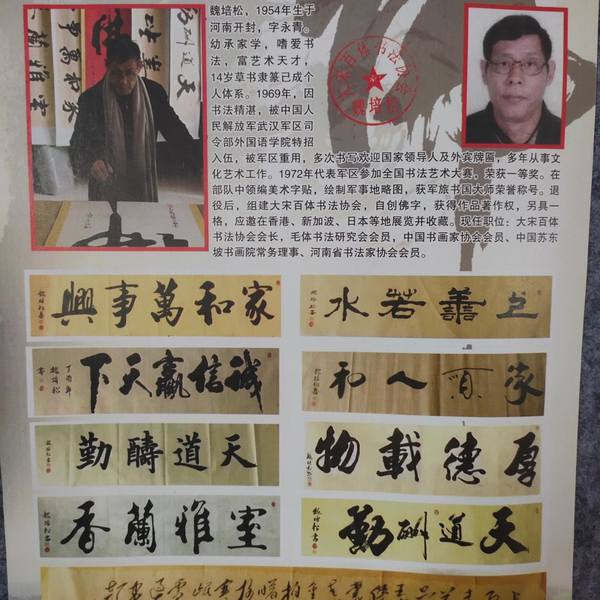 魏培松，1954年生于
河南开封，字永青。
幼承家学，嗜爱书
法，富艺术天才，
14岁草书隶篆已成个
人体系。1969年，因
书法精湛，被中国人
民解放军武汉军区司
令部外国语学院特招
入伍，被军区重用，多次书写欢迎国家领导人及外宾牌匾，多年从事文
化艺术工作。1972年代表军区参加全国书法艺术大赛，荣获一等奖。在
部队中领编美术字贴，绘制军事地略图，获军旅书国大师荣誉称号。退
役后，组建大宋百体书法协会，自创佛字，获得作品著作权，另具一
格，应邀在香港、新加波、日本等地展览并收藏。现任职位：大宋百体
书法协会会长，毛体书法研究会会员，中国书画家协会会员、中国苏东
坡书画院常务理事、河南省书法家协会会员。
大宋百体书法协会
魏培松
天道酬
家和萬事興
魏培松書
上善若水
魏培松書
誠信贏天下
丁酉年
魏培松
書
家順人和
魏培松書
天道酬勤
魏培松書
厚德載物
魏培松書
室雅蘭香
魏培松書
天道酬勤
魏培松書